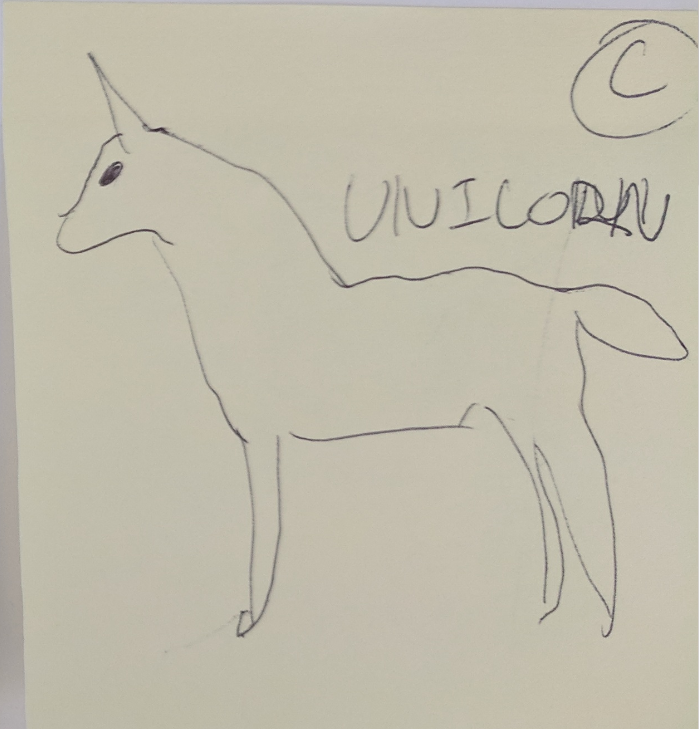 C
UNICORN